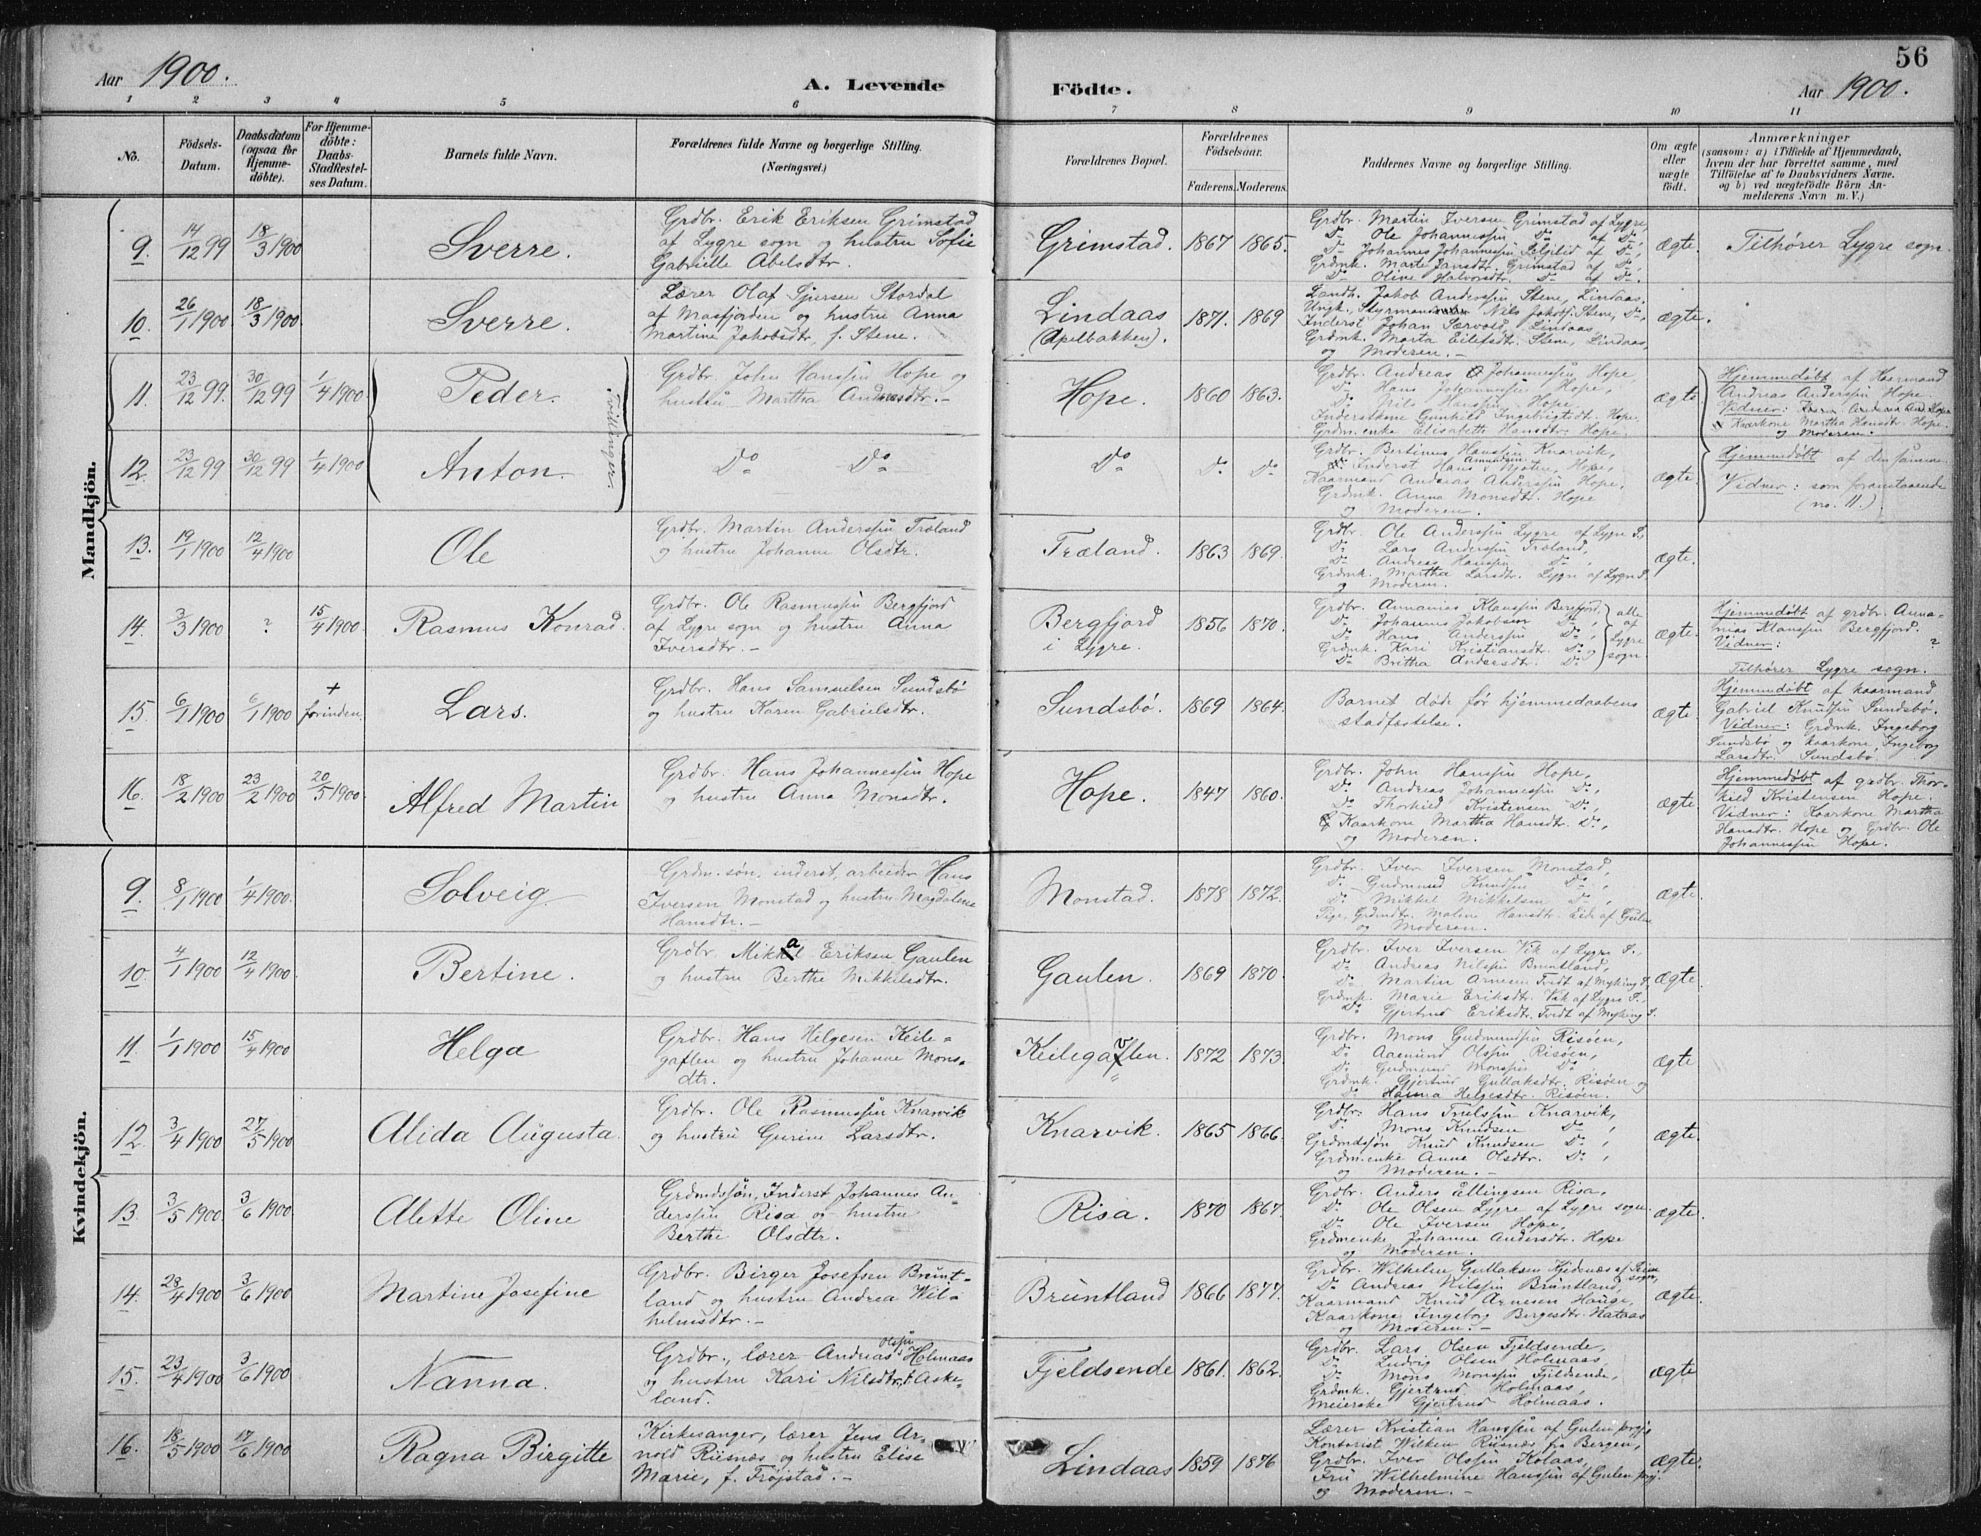 56
Aar 1900.
A. Levende Födte.
Aar 1900.
1 2 3 4 5 6 7 8 9 10 11
No.
Födsels-Datum.
Daabsdatum (ogsaa for Hjemme-döbte).
For Hjemme-döbte: Daabs-Stadfæstel-ses Datum.
Barnets fulde Navn.
Forældrenes fulde Navne og borgerlige Stilling.
(Næringsvei.)
Forældrenes Bopæl.
Forældrenes Födselsaar.
Faderens. Moderens.
Faddernes Navne og borgerlige Stilling.
Om ægte eller uægte födt.
Anmærkninger
(saasom: a) i Tilfælde af Hjemmedaab,
hvem der har forrettet samme, med
Tilföielse af to Daabsvidners Navne,
og b) ved uægtefödte Börn An-
melderens Navn m. V.)
Mandkjön.
9. 14/12 99 18/3 1900 Sverre.
Grdbr. Erik Eriksen Grimstad
af Lygre sogn og hustru Sofie
Gabrielle Abelsdtr.
Grimstad. 1867 1865.
Grdbr. Martin Iversen Grimstad af Lygre,
Do Ole Johannessen Do af Do,
Do Johannes Johannessen Seljelid af Do,
Grdmk. Marte Jansdtr. Grimstad af Do,
Do Oline Halvorsdtr. Do af Do.
ægte. Tilhører Lygre sogn.
10. 26/1 1900. 18/3 1900. Sverre.
Lærer Olaf Sjursen Stordal
af Masfjorden og hustru Anna
Martine Jakobsdtr, f. Stene.
Lindaas (Apelbakken). 1871. 1869
Landh. Jakob Anderssen Stene, Lindaas.
Ungk., Styrmand Nils Jakobsj. Stene, Do,
Inderst Johan Særvold, Lindaas,
Grdmk. Marta Eilefsdtr. Stene, Lindaas,
og Moderen. -
ægte.
11. 23/12 99. 30/12 99 1/4 1900. Peder.
Tvillinger.
Grdbr. John Hanssen Hope og
hustru Martha Andersdtr. -
Hope. 1860 1863.
Grdbr. Andreas Johannessen Hope,
Do Hans Johannessen Hope,
Do Nils Hanssen Hope
Inderstkone Gunhild Ingebrigtsdtr. Hope.
Grdm.enke Elisabeth Hansdtr. Hope.
ægte
Hjemmedøbt af Kaarmand
Andreas Anderssen Hope
Vidner: Kaarm. Andreas And. Hope
Kaarkone Martha Hansdtr. Hope.
og Moderen.
12. 23/12 99 30/12 99 1/4 1900 Anton.
Do Do
Do Do Do
Grdbr. Bertinus Hanssen Knarvik,
Inderst Hans Mjøten, Hope,
Kaarmand Andreas Anderssen Hope,
Grdmk. Anna Monsdtr. Hope
og Moderen.
ægte.
Hjemmedøbt af den samme
Vidner: som foranstaaende
(no. 11.)
13. 19/1 1900 12/4 1900 Ole
Grdbr. Martin Anderssen Træland
og hustru Johanne Olsdtr.
Træland. 1863 1869.
Grdbr. Ole Anderssen Lygre af Lygre S.,
Do Lars Anderssen Træland,
Do Andreas Hanssen Do,
Grdmk. Martha Larsdtr. Lygre af Lygre S.
og Moderen.
ægte.
14. 3/3 1900 ? 15/4 1900. Rasmus Konrad.
Grdbr. Ole Rasmussen Bergfjord
af Lygre sogn og hustru Anna
Iversdtr. -
Bergfjord i Lygre. 1856 1870.
Grdbr. Annanias Klaussen Bergfjord,
Do Johannes Jakobsen Do,
Do Hans Anderssen Do,
Grdmk. Kari Kristiansdtr. Do og
Do Britha Andersdtr. Do
alle af Lygre sogn.
ægte.
Hjemmedøbt af grdbr. Anna-
nias Klaussen Bergfjord.
Vidner: ?
Tilhører Lygre sogn.
15. 6/1 1900 6/1 1900 + forinden. Lars.
Grdbr. Hans Samuelsen Sundsbø
og hustru Karen Gabrielsdtr.
Sundsbø. 1869 1864.
Barnet døde før hjemmedaabens
stadfæstelse.
ægte.
Hjemmedøbt af kaarmand
Gabriel Knudsen Sundsbø.
Vidner: Grdmk. Ingeborg
Sundsbø og kaarkone Ingeborg
Larsdtr. Sundsbø.
16. 18/2 1900 23/2 1900 20/5 1900. Alfred Martin
Grdbr. Hans Johannessen Hope
og hustru Anna Monsdtr.
Hope. 1847 1860.
Grdbr. John Hanssen Hope,
Do Andreas Johannessen Do,
Do Thorkild Kristensen Do,
Kaarkone Martha Hansdtr. Do,
og Moderen.
ægte.
Hjemmedøbt af grdbr. Thor-
kild Kristensen Hope.
Vidner: Kaarkone Martha
Hansdtr. Hope og Grdbr. Ole
Johannessen Hope.
Kvindekjön.
9. 8/1 1900 1/4 1900. Solveig
Grdm.søn, inderst, arbeider Hans
Iversen Monstad og hustru Magdalena
Hansdtr. -
Monstad. 1878 1872.
Grdbr. Iver Iversen Monstad,
Do Gudmund Knudsen Do,
Do Mikkel Mikkelsen Do,
Pige, Grdmdtr. Maline Hansdtr. Eide af Gulen
og Moderen.
ægte.
10. 4/1 1900 12/4 1900 Bertine.
Grdbr. Mikal Eriksen Gaulen
og hustru Berthe Mikkelsdtr.
Gaulen. 1869 1870.
Grdbr. Iver Iversen Vik af Lygre S.
Do Andreas Nilssen Bruntland,
Do Martin Arnesen Tvedt af Myking S.
Grdmk. Marie Eriksdtr. Vik af Lygre S.,
Do Gjertrud Eriksdtr. Tvedt af Myking S.
ægte.
11. 1/1 1900 15/4 1900 Helga
Grdbr. Hans Helgesen Keile-
gavlen og hustru Johanne Mons-
dtr.
Keilegavlen. 1872 1873.
Grdbr. Mons Gudmundsen Risøen,
Do Aamund Olssen Risøen,
Do Gudmund Monssen Do
Grdmk. Gjertrud Gullaksdtr. Risøen og
Do Hanna Helgesdtr. Risøen.
ægte
12. 3/4 1900 27/5 1900 Alida Augusta.
Grdbr. Ole Rasmussen Knarvik
og hustru Gurine Larsdtr.
Knarvik. 1865 1866.
Grdbr. Hans Trulssen Knarvik,
Do Mons Knudsen Do,
Grdmdssøn Knud Knudsen Do,
Grdm.enke Anne Olsdtr. Do,
og Moderen. -
ægte.
13. 3/5 1900. 3/6 1900. Alette Oline
Grdmdssøn, Inderst Johannes An-
derssen Risa og hustru
Berthe Olsdtr.
Risa. 1870 1867.
Grdbr. Anders Ellingsen Risa,
Do Ole Olsen Lygre af Lygre sogn.
Do Ole Iversen Hope,
Grdmenke Johanne Andersdtr. Hope
og Moderen.
ægte.
14. 23/4 1900 3/6 1900. Martine Josefine
Grdbr. Birger Josefsen Brunt-
land og hustru Andrea Wil-
helmsdtr. -
Bruntland 1866 1877.
Grdbr. Wilhelm Gullaksen Kjeknæs af Seim sogn,
Do Andreas Nilssen Bruntland,
Kaarmand Knud Arnesen Hauge,
Kaarkone Ingeborg Bergesdtr. Kataas
og Moderen. -
ægte.
15. 23/4 1900 3/6 1900. Nanna.
Grdbr., lærer Andreas Olssen Holmaas
og hustru Kari Nilsdtr, f. Aske-
land.
Fjeldsende 1861. 1862.
Grdbr. Lars Olsen Fjeldsende,
Do Ludvig Olsen Holmaas,
Do Mons Monssen Fjeldsende,
Grdmk. Gjertrud Holmaas,
Meierske Gjertrud Holmaas.
ægte
16. 18/5 1900. 17/6 1900. Ragna Birgitte
Kirkesanger, lærer Jens Ar-
nold Riisnæs og hustru Elise
Marie, f. Frøjstad. -
Lindaas 1859 1876
Lærer Kristian Hanssen af Gulen prgj.
Kontorist Wilken Riisnæs fra Bergen,
Grdbr. Iver Olssen Kolaas,
Fru Wilhelmine Hanssen af Gulen prgj.
og Moderen. -
ægte.